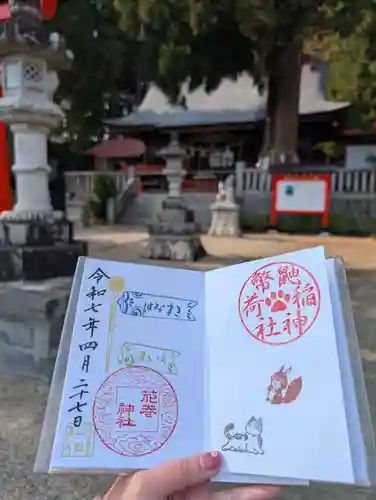 令和七年四月二十七日
はなまき
花巻
神社
鼬幣稲荷神社